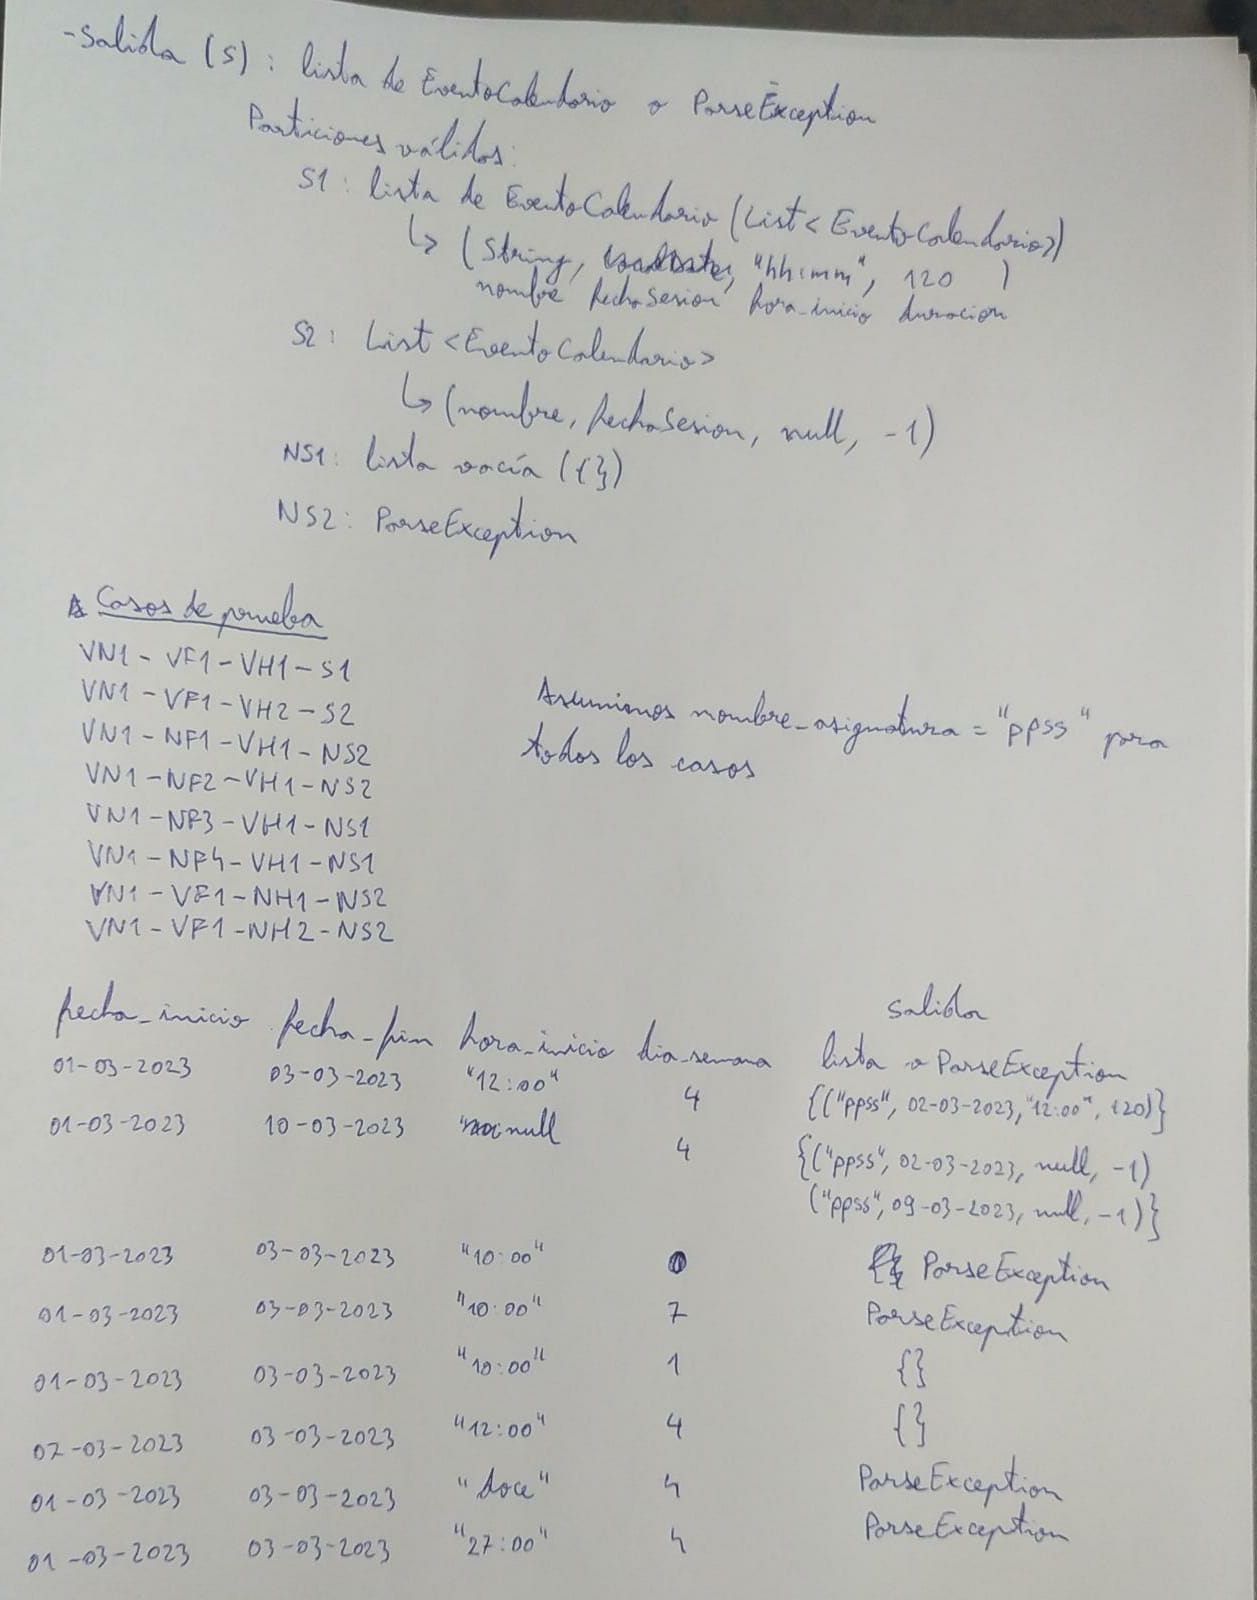 -Salida (S) : lista de EventoCalendario o ParseException
Particiones válidas:
S1 : lista de EventoCalendario (List<EventoCalendario>)
↳ (String, "hh:mm", 120 )
nombre fechaSesion hora_inicio duracion
S2 : List <EventoCalendario>
↳ (nombre, fechaSesion, null, -1)
NS1: lista vacía ({})
NS2: ParseException
Casos de prueba
VN1 - VF1 - VH1 - S1
VN1 - VF1 - VH2 - S2
VN1 - NF1 - VH1 - NS2
VN1 - NF2 - VH1 - NS2
VN1 - NF3 - VH1 - NS1
VN1 - NF4 - VH1 - NS1
VN1 - VF1 - NH1 - NS2
VN1 - VF1 - NH2 - NS2
Asumimos nombre_asignatura = "ppss" para
todos los casos
fecha_inicio fecha_fin hora_inicio dia_semana salida
lista o ParseException
01-03-2023 03-03-2023 "12:00" 4 {("ppss", 02-03-2023, "12:00", 120)}
01-03-2023 10-03-2023 null 4 {("ppss", 02-03-2023, null, -1)
("ppss", 09-03-2023, null, -1)}
01-03-2023 03-03-2023 "10:00" 0 ParseException
01-03-2023 03-03-2023 "10:00" 7 ParseException
01-03-2023 03-03-2023 "10:00" 1 {}
07-03-2023 03-03-2023 "12:00" 4 {}
01-03-2023 03-03-2023 "doce" 4 ParseException
01-03-2023 03-03-2023 "27:00" 4 ParseException